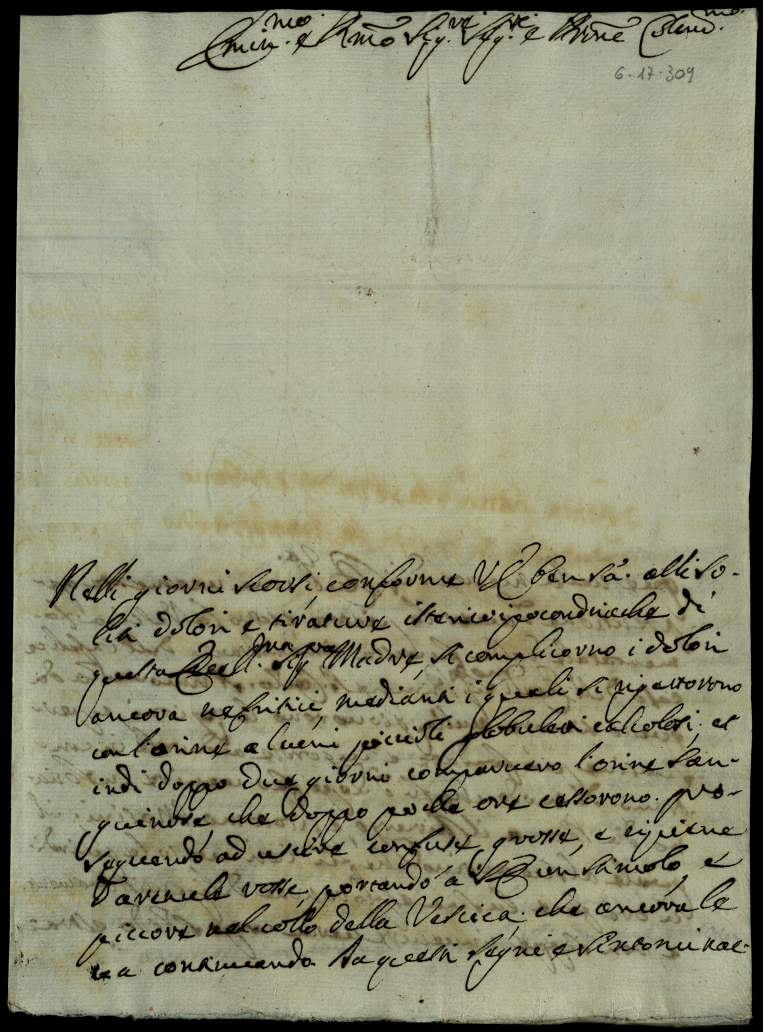 Emin.mo e R.mo Sig.re Sig.re e P'rone Colend.mo
6-17-309
Nelli giorni scorsi, conforme VE ben sà. alli so-
liti dolori e tirature isterico ipocondriache di
questa Ecc.ma Sig.ra Madre, si complicorno i dolori
ancora nefritici, medianti i quali si riportorono
con l'orine alcuni piccioli globuletti calcolosi. et
indi doppo due giorni comparvero l'orine san-
guinose, che doppo poche ore cessorono. pro-
seguendo ad uscire confuse, grosse, e ripiene
d'arenule rosse, portando à VE un stimolo, e
piccore nel collo della Vescica. che ancora le
va continuando. Da questi segni e sintomi rac-